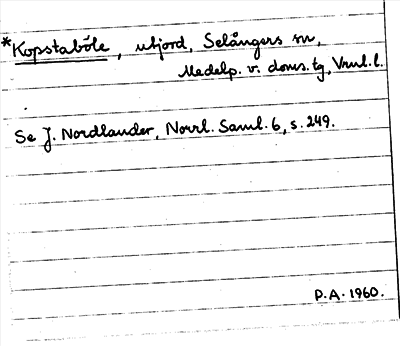 *Kopstaböle, utjord, Selångers sn,
Medelp. v. doms. tg, Vrnl. l.
Se J. Nordlander, Norrl. Saml. 6, s. 249.
P.A. 1960.